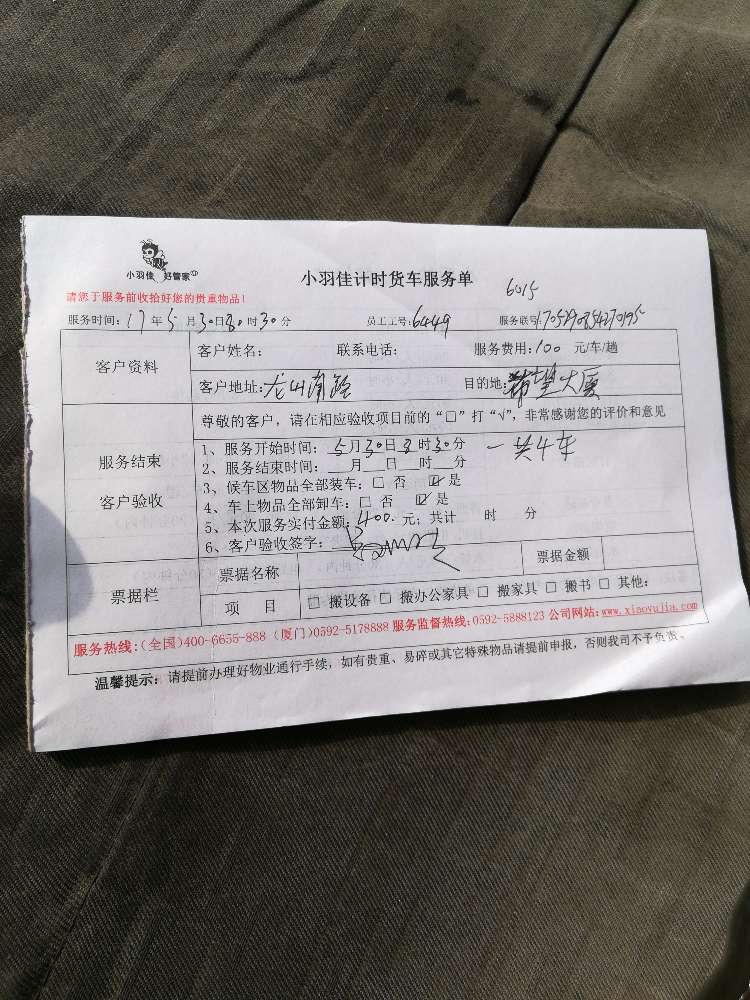 小羽佳 好管家
小羽佳计时货车服务单
6015
请您于服务前收拾好您的贵重物品！
服务时间：17年5月30日8时30分 员工工号：6449 服务联号：
客户资料
客户姓名： 联系电话： 服务费用：100 元/车/趟
客户地址：龙山南路 目的地：希望大厦
服务结束
客户验收
尊敬的客户，请在相应验收项目前的“□”打“√”，非常感谢您的评价和意见
1、服务开始时间：5月30日8时30分 一共4车
2、服务结束时间：__月__日__时__分
3、候车区物品全部装车：□ 否 ☑ 是
4、车上物品全部卸车：□ 否 ☑ 是
5、本次服务实付金额：400.元；共计 时 分
6、客户验收签字：
票据栏
票据名称 票据金额
项 目 □ 搬设备 □ 搬办公家具 □ 搬家具 □ 搬书 □ 其他：
服务热线：（全国）400-6655-888（厦门）0592-5178888 服务监督热线：0592-5888123 公司网站：www.xiaoyujia.com
温馨提示：请提前办理好物业通行手续，如有贵重、易碎或其它特殊物品请提前申报，否则我司不予负责。